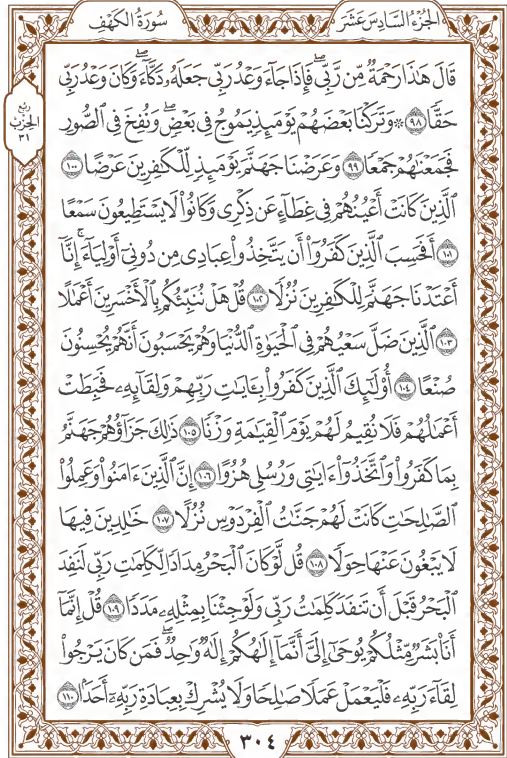 سُورَةُ الكَهْفِ
الجُزْءُ السَّادِسَ عَشَرَ
قَالَ هَٰذَا رَحْمَةٌ مِّن رَّبِّي ۖ فَإِذَا جَآءَ وَعْدُ رَبِّي جَعَلَهُۥ دَكَّآءَ ۖ وَكَانَ وَعْدُ رَبِّي
حَقًّا ٩٨ ۞ وَتَرَكْنَا بَعْضَهُمْ يَوْمَئِذٍ يَمُوجُ فِي بَعْضٍ ۖ وَنُفِخَ فِي ٱلصُّورِ
فَجَمَعْنَٰهُمْ جَمْعًا ٩٩ وَعَرَضْنَا جَهَنَّمَ يَوْمَئِذٍ لِّلْكَٰفِرِينَ عَرْضًا ١٠٠
ٱلَّذِينَ كَانَتْ أَعْيُنُهُمْ فِي غِطَآءٍ عَن ذِكْرِي وَكَانُوا۟ لَا يَسْتَطِيعُونَ سَمْعًا
١٠١ أَفَحَسِبَ ٱلَّذِينَ كَفَرُوٓا۟ أَن يَتَّخِذُوا۟ عِبَادِي مِن دُونِيٓ أَوْلِيَآءَ ۚ إِنَّآ
أَعْتَدْنَا جَهَنَّمَ لِلْكَٰفِرِينَ نُزُلًا ١٠٢ قُلْ هَلْ نُنَبِّئُكُم بِٱلْأَخْسَرِينَ أَعْمَٰلًا
١٠٣ ٱلَّذِينَ ضَلَّ سَعْيُهُمْ فِي ٱلْحَيَوٰةِ ٱلدُّنْيَا وَهُمْ يَحْسَبُونَ أَنَّهُمْ يُحْسِنُونَ
صُنْعًا ١٠٤ أُو۟لَٰٓئِكَ ٱلَّذِينَ كَفَرُوا۟ بِـَٔايَٰتِ رَبِّهِمْ وَلِقَآئِهِۦ فَحَبِطَتْ
أَعْمَٰلُهُمْ فَلَا نُقِيمُ لَهُمْ يَوْمَ ٱلْقِيَٰمَةِ وَزْنًا ١٠٥ ذَٰلِكَ جَزَآؤُهُمْ جَهَنَّمُ
بِمَا كَفَرُوا۟ وَٱتَّخَذُوٓا۟ ءَايَٰتِي وَرُسُلِي هُزُوًا ١٠٦ إِنَّ ٱلَّذِينَ ءَامَنُوا۟ وَعَمِلُوا۟
ٱلصَّٰلِحَٰتِ كَانَتْ لَهُمْ جَنَّٰتُ ٱلْفِرْدَوْسِ نُزُلًا ١٠٧ خَٰلِدِينَ فِيهَا
لَا يَبْغُونَ عَنْهَا حِوَلًا ١٠٨ قُل لَّوْ كَانَ ٱلْبَحْرُ مِدَادًا لِّكَلِمَٰتِ رَبِّي لَنَفِدَ
ٱلْبَحْرُ قَبْلَ أَن تَنفَدَ كَلِمَٰتُ رَبِّي وَلَوْ جِئْنَا بِمِثْلِهِۦ مَدَدًا ١٠٩ قُلْ إِنَّمَآ
أَنَا۠ بَشَرٌ مِّثْلُكُمْ يُوحَىٰٓ إِلَيَّ أَنَّمَآ إِلَٰهُكُمْ إِلَٰهٌ وَٰحِدٌ ۖ فَمَن كَانَ يَرْجُوا۟
لِقَآءَ رَبِّهِۦ فَلْيَعْمَلْ عَمَلًا صَٰلِحًا وَلَا يُشْرِكْ بِعِبَادَةِ رَبِّهِۦٓ أَحَدًۢا ١١٠
ربع
الحِزْبِ
٣١
٣٠٤